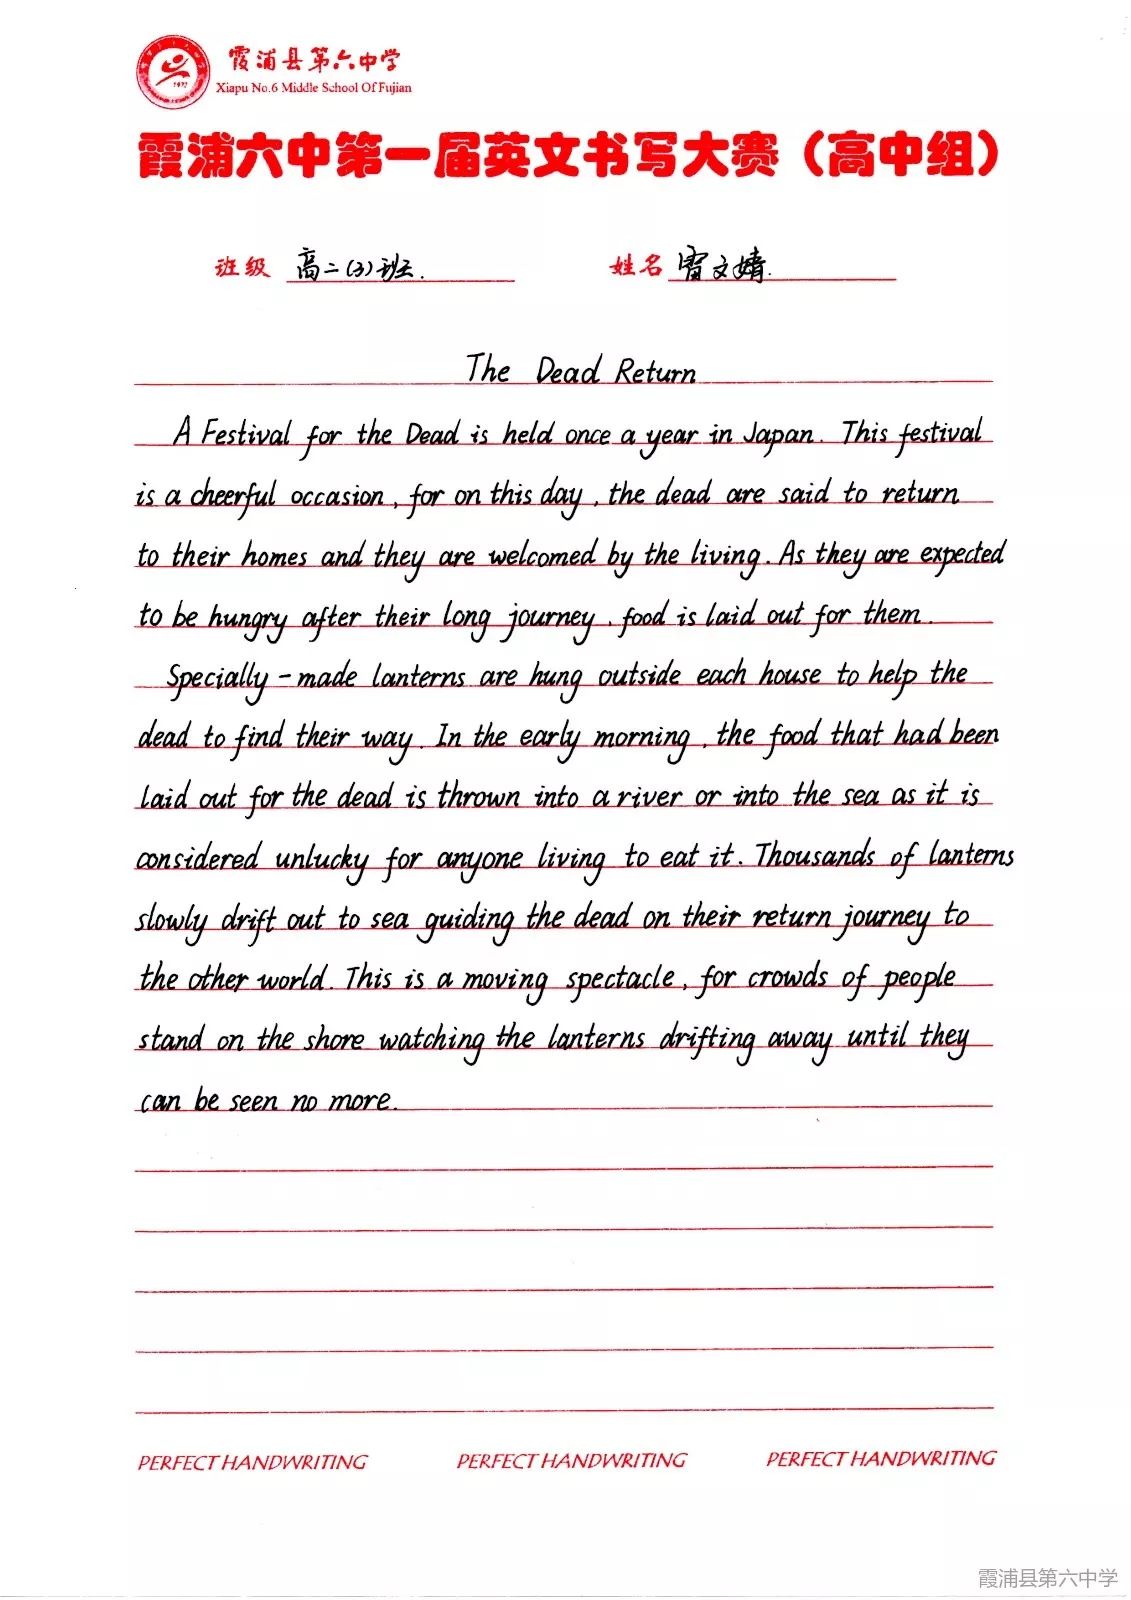 霞浦县第六中学
Xiapu No.6 Middle School Of Fujian
1972
霞浦六中第一届英文书写大赛（高中组）
班级 高二(3)班. 姓名 雷文婧.
The Dead Return
A Festival for the Dead is held once a year in Japan. This festival
is a cheerful occasion, for on this day, the dead are said to return
to their homes and they are welcomed by the living. As they are expected
to be hungry after their long journey, food is laid out for them.
Specially-made lanterns are hung outside each house to help the
dead to find their way. In the early morning, the food that had been
laid out for the dead is thrown into a river or into the sea as it is
considered unlucky for anyone living to eat it. Thousands of lanterns
slowly drift out to sea guiding the dead on their return journey to
the other world. This is a moving spectacle, for crowds of people
stand on the shore watching the lanterns drifting away until they
can be seen no more.
PERFECT HANDWRITING PERFECT HANDWRITING PERFECT HANDWRITING
霞浦县第六中学